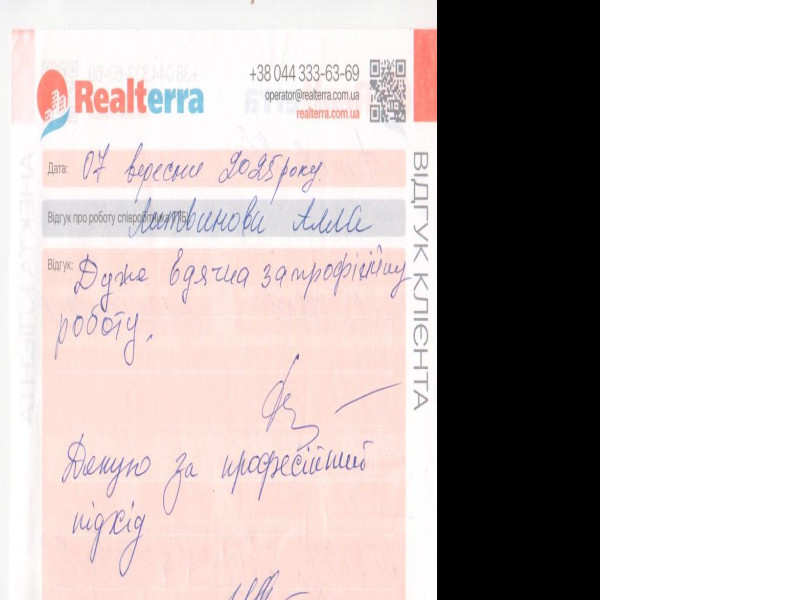 Realterra
+38 044 333-63-69
operator@realterra.com.ua
realterra.com.ua
Дата: 07 вересня 2025 року.
Відгук про роботу співробітника (ПІБ): Литвинова Алла
Відгук: Дуже вдячна за професійну
роботу.
Дякую за професійний
підхід
ВІДГУК КЛІЄНТА